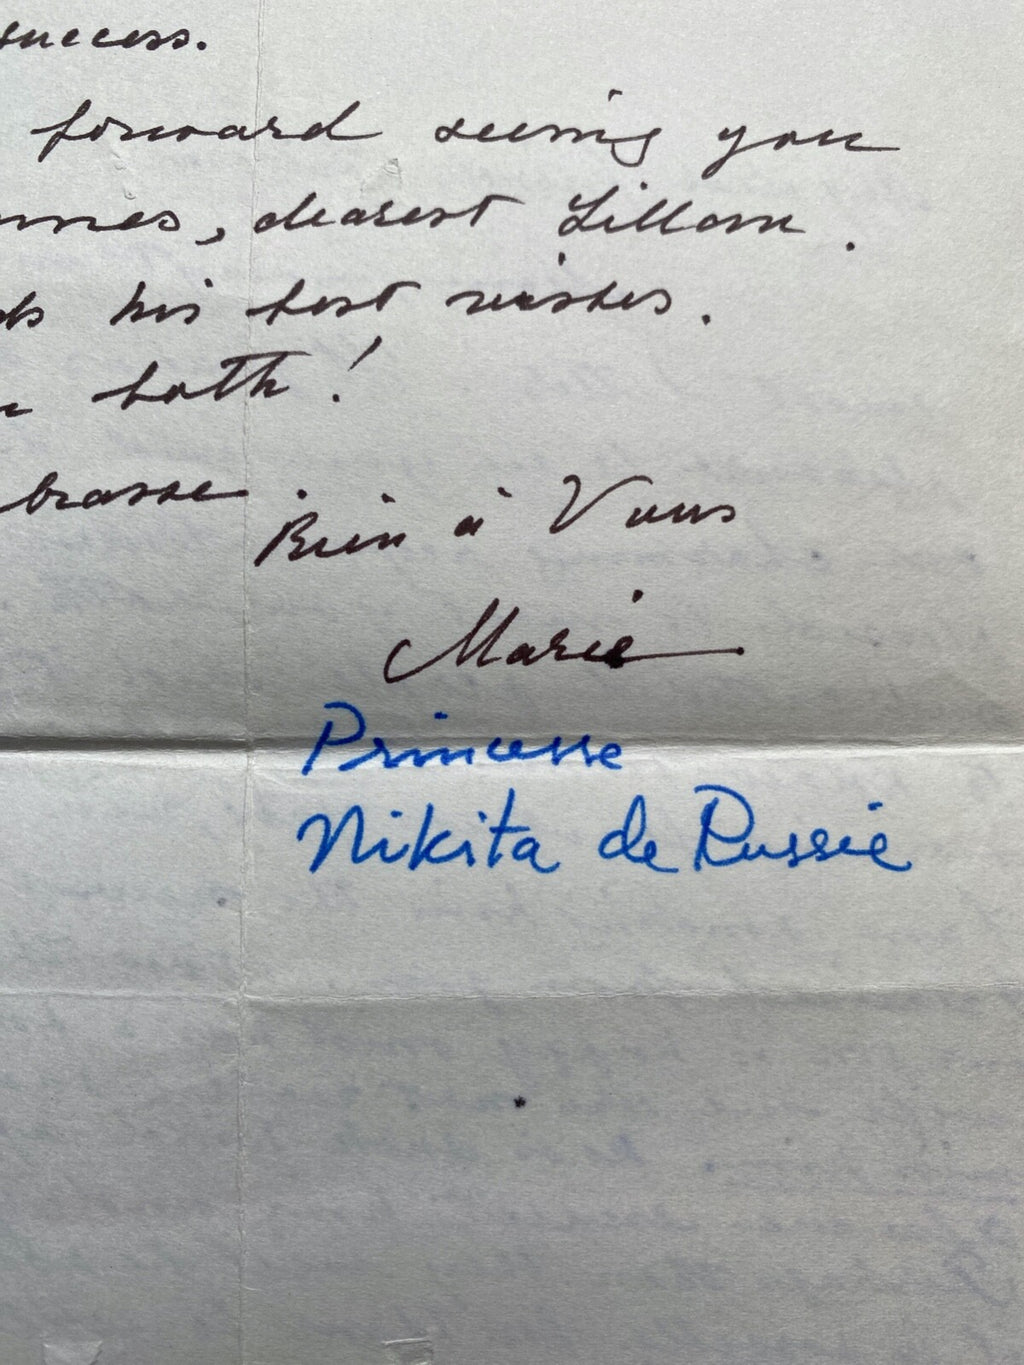 success.
forward seeing you
, dearest Lillom.
his best wishes.
both!
brasse. Bien à Vous
Marie
Princesse
Nikita de Russie